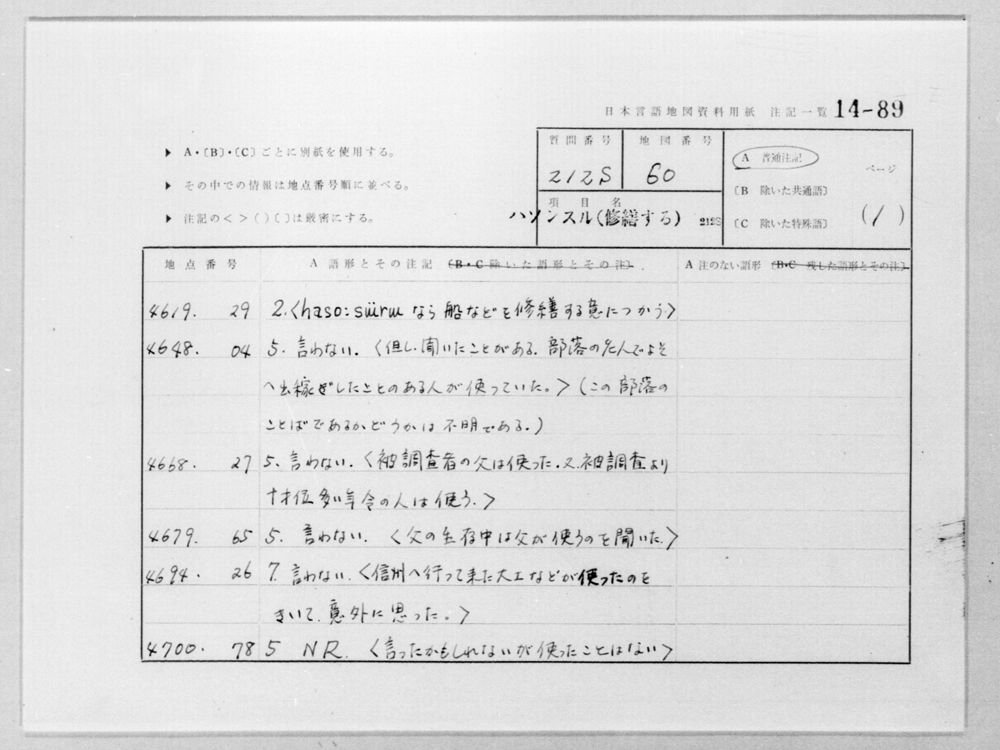 日本言語地図資料用紙 注記一覧 14-89
▶ A・〔B〕・〔C〕ごとに別紙を使用する。
▶ その中での情報は地点番号順に並べる。
▶ 注記の< >( )〔 〕は厳密にする。
質問番号 地図番号
212S 60
項目名
ハソンスル(修繕する) 212S
A 普通注記
〔B 除いた共通語〕
〔C 除いた特殊語〕
ページ
(1)
地点番号 A 語形とその注記 (B・C 除いた語形とその注) A 注のない語形 (B・C 残した語形とその注)
4619. 29 2.<haso:süɯrɯなら船などを修繕する意につかう>
4648. 04 5. 言わない.<但し.聞いたことがある.部落の人でよそ
へ出稼ぎしたことのある人が使っていた。>(この部落の
ことばであるか、どうかは不明である.)
4668. 27 5. 言わない.<被調査者の父は使った.又.被調査より
十才位多い年令の人は使う.>
4679. 65 5. 言わない. <父の生存中は父が使うのを聞いた.>
4694. 26 7. 言わない.<信州へ行って来た大工などが使ったのを
きいて、意外に思った。>
4700. 78 5 NR.<言ったかもしれないが使ったことはない>